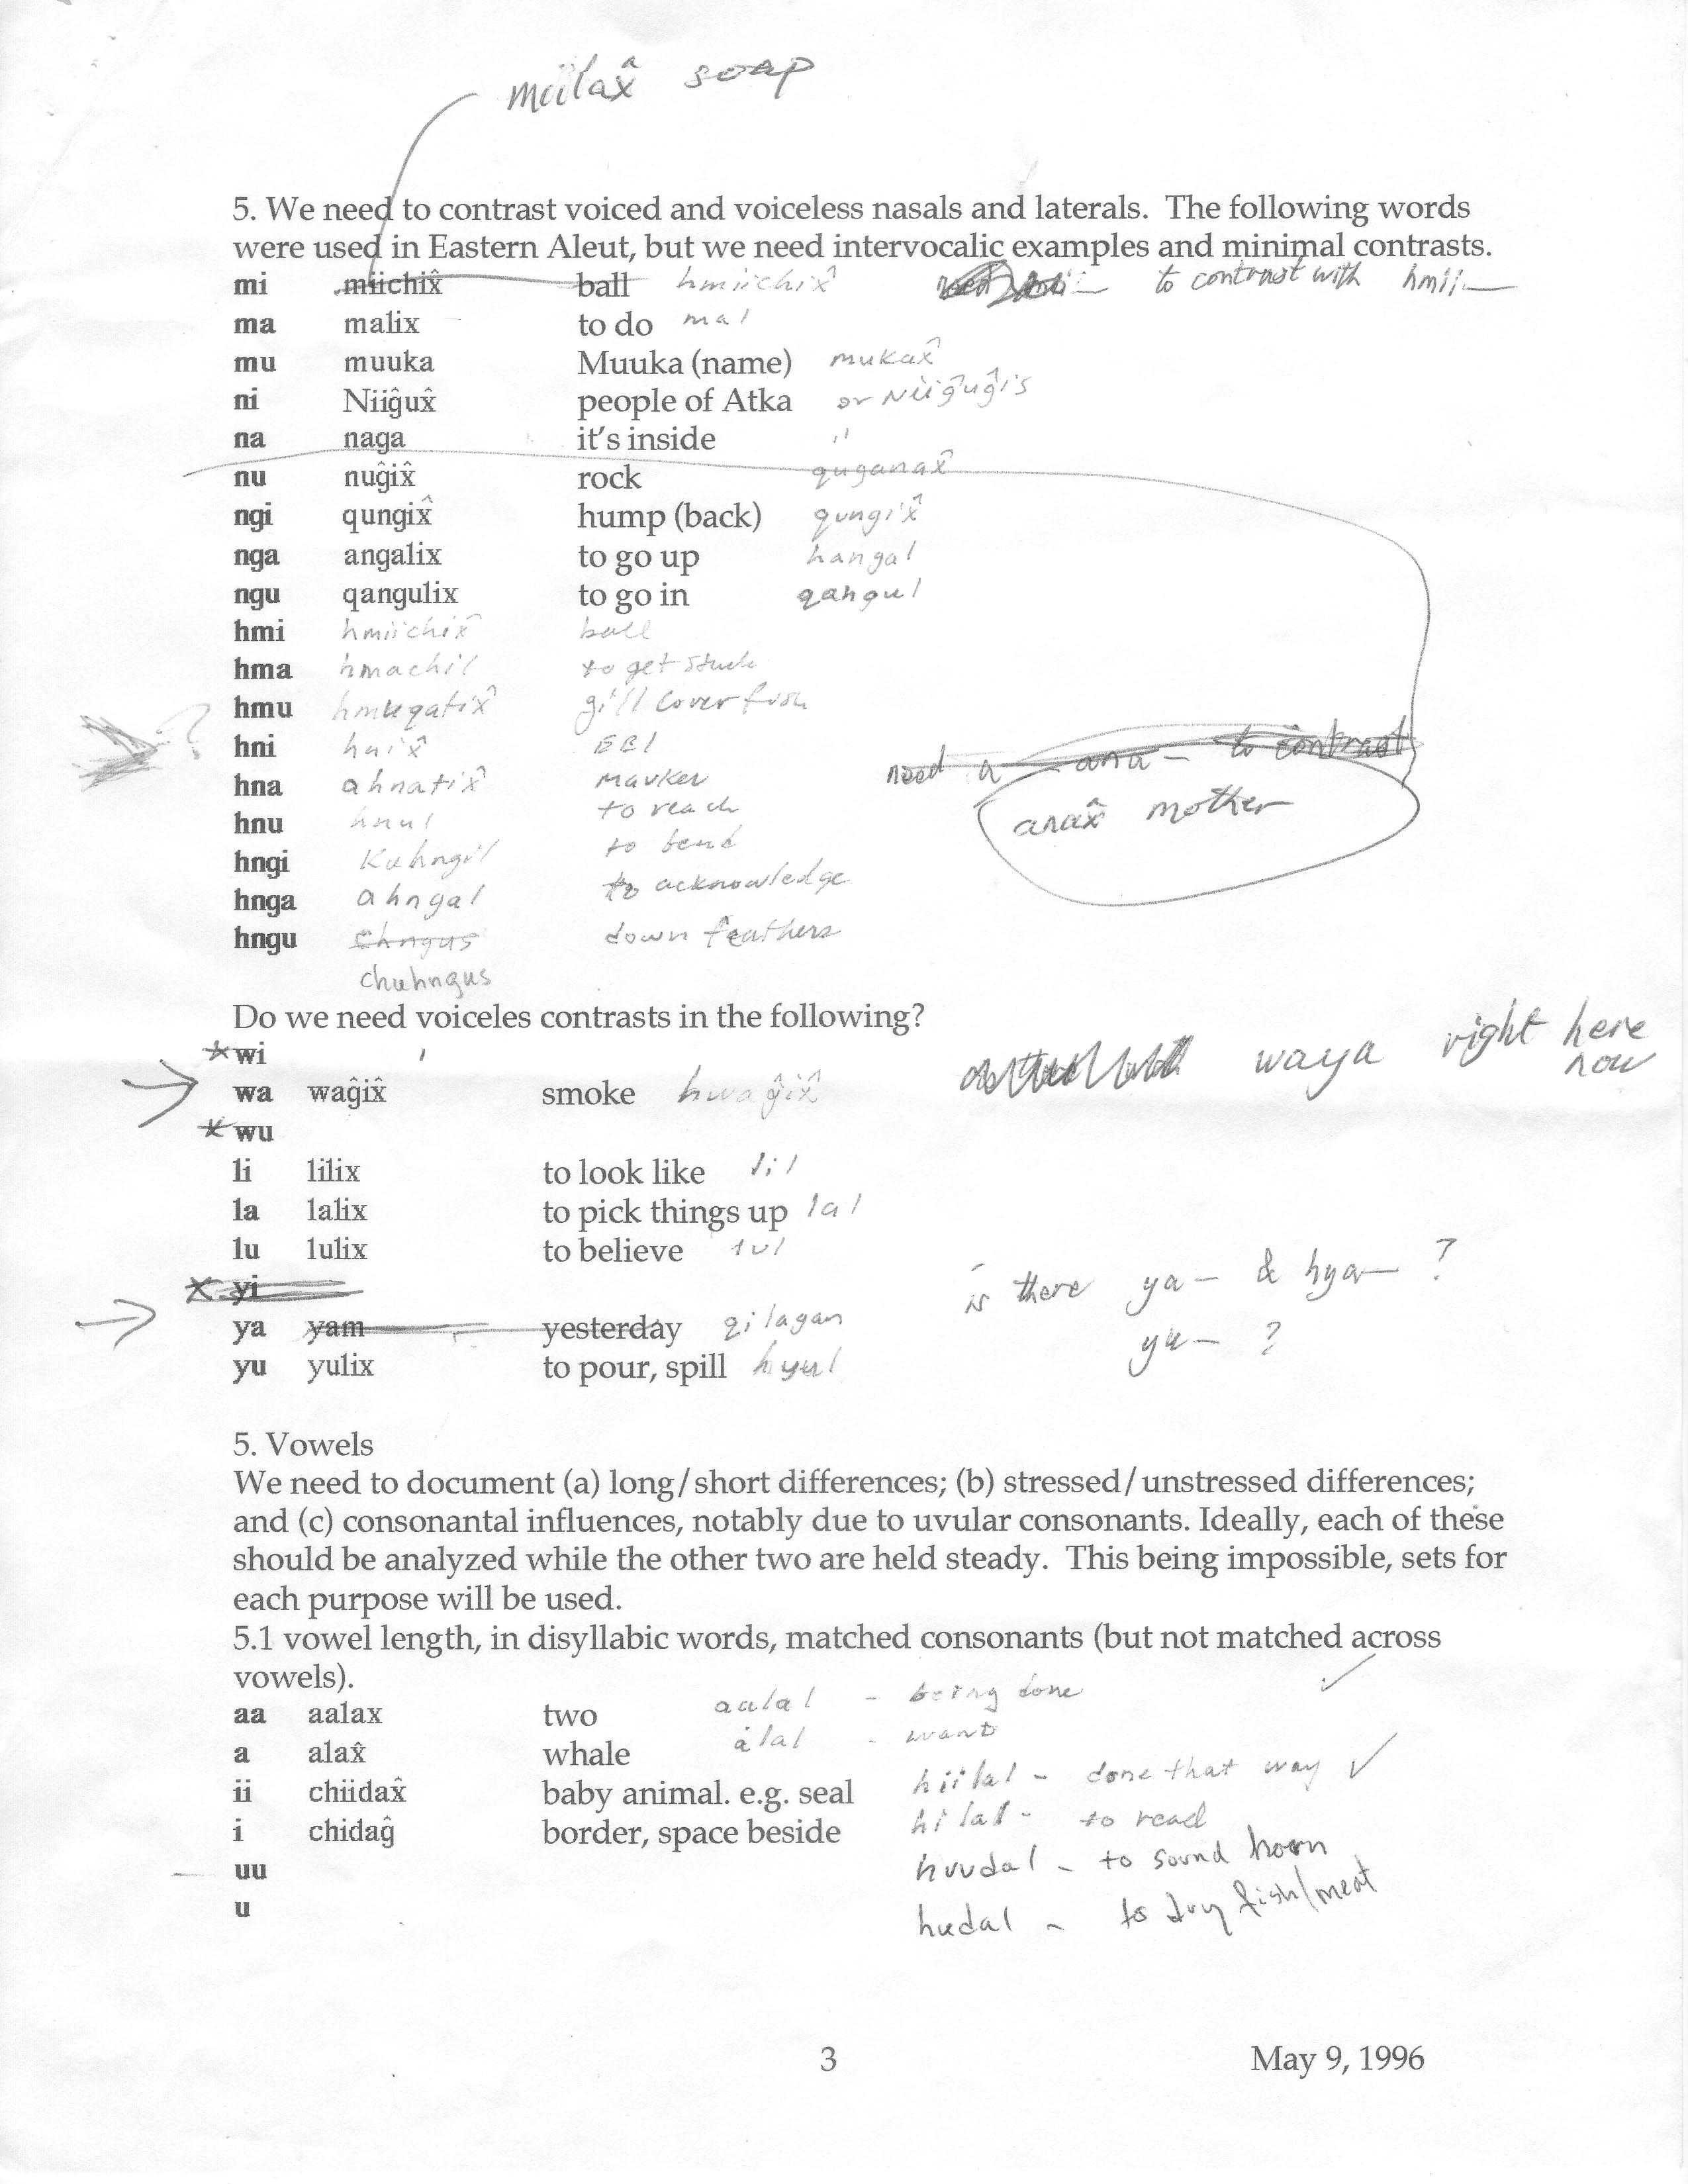 miilax̂ soap
5. We need to contrast voiced and voiceless nasals and laterals. The following words
were used in Eastern Aleut, but we need intervocalic examples and minimal contrasts.
mi miichix̂ ball hmiichix̂ to contrast with hmii—
ma malix to do mal
mu muuka Muuka (name) mukax̂
ni Niiĝux̂ people of Atka or Niiĝuĝis
na naga it's inside "
nu nuĝix̂ rock quganax̂
ngi qungix̂ hump (back) qungix̂
nga angalix to go up hangal
ngu qangulix to go in qangul
hmi hmiichix̂ ball
hma hmachil to get stuck
hmu hmuqatix̂ gill cover fish
? hni hnix̂ EEl
need a —ana— to contrast
hna ahnatix̂ Marker
anax̂ mother
hnu hnul to reach
hngi Kahngil to bend
hnga ahngal to acknowledge
hngu chngus down feathers
chuhngus
Do we need voiceles contrasts in the following?
*wi
waya right here now
wa waĝix̂ smoke hwaĝix̂
*wu
li lilix to look like lil
la lalix to pick things up lal
lu lulix to believe lul
is there ya— & hya— ?
* yi
ya yam yesterday qilagan
yu— ?
yu yulix to pour, spill hyul
5. Vowels
We need to document (a) long/short differences; (b) stressed/unstressed differences;
and (c) consonantal influences, notably due to uvular consonants. Ideally, each of these
should be analyzed while the other two are held steady. This being impossible, sets for
each purpose will be used.
5.1 vowel length, in disyllabic words, matched consonants (but not matched across
vowels).
aa aalax two aalal - being done
a alax̂ whale alal - want
ii chiidax̂ baby animal. e.g. seal hiilal - done that way ✓
i chidaĝ border, space beside hilal - to read
uu huudal - to sound horn
u hudal - to dry fish/meat
3 May 9, 1996